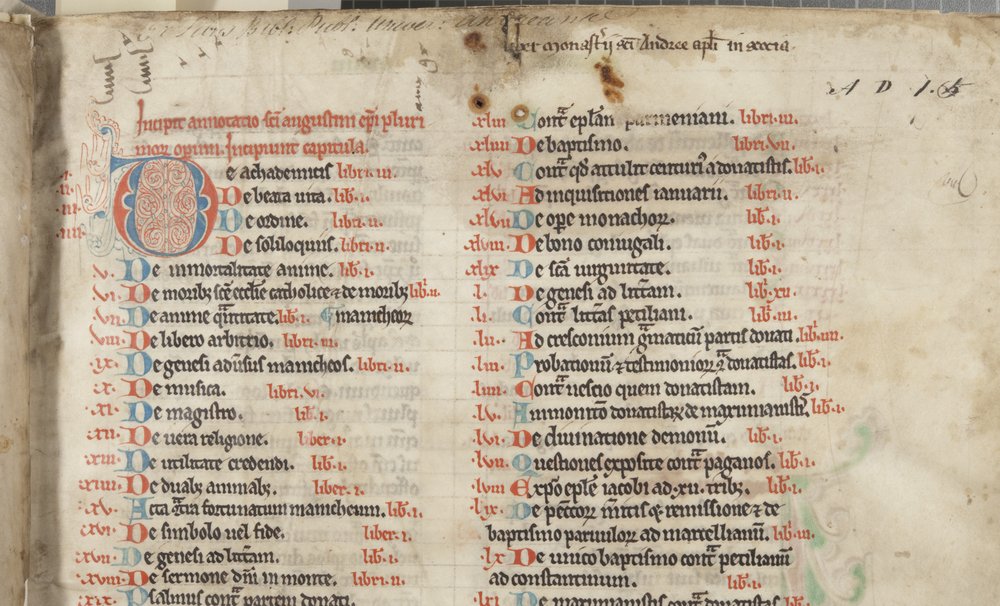 Liber monast'ii sc̄i Andree apl̄i in scocia
A D 1.
Incipit annotatio sc̄i augustini ep̄i pluri
mor opum. Incipiunt capitula.
De achademicis libri .iii.
De beata uita. lib' .i.
De ordine. libri .ii.
De soliloquiis. libri .ii.
.v. De inmortalitate anime. lib' .i.
.vi. De morib; sc̄e eccl̄ie catholice ⁊ de morib; lib' .ii.
.vii. De anime q̄ntitate. lib' .i. manicheor
.viii. De libero arbitrio. libri .iii.
.ix. De genesi adu'sus manicheos. libri .ii.
.x. De musica. libri .vi.
.xi. De magistro. lib' .i.
.xii. De uera religione. liber .i.
.xiii. De utilitate credendi. lib' .i.
.xiiii. De duab; animab;. liber .i.
.xv. Acta 9tra fortunatum manicheum. lib' .i.
.xvi. De simbolo uel fide. liber .i.
.xvii. De genesi ad litt̄am. lib' .i.
.xviii. De sermone dn̄i in monte. libri .ii.
.xix. Psalmus cont̄ partem donati.
.xliii. Cont̄ ep̄lam parmeniani. libri .iii.
.xliiii. De baptismo. libri .vii.
.xlv. Cont̄ qd̄ attulit centuri9 a donatistis. lib' .i.
.xlvi. Ad inquisitiones ianuarii. libri .ii.
.xlvii. De ope monachor. lib' .i.
.xlviii. De bono coniugali. lib' .i.
.xlix. De sc̄a uirginitate. lib' .i.
.l. De genesi ad litt̄am. lib' .xii.
.li. Cont̄ litt̄as petiliani. lib' .iii.
.lii. Ad cresconium g̃maticū partis donati. lib' .iiii.
.liii. Probationū ⁊ testimonior 9t̄ donatistas. lib' .i.
.liiii. Cont̄ nescio quem donatistam. lib' .i.
.lv. Ammonitō donatistar de maximianist̄. lib' .i.
.lvi. De diuinatione demonū. lib' .i.
.lvii. Questiones exposite cont̄ paganos. lib' .i.
.lviii. Expō ep̄le iacobi ad .xii. trib;. lib' .i.
.lix. De pecc̄or m̄itis ⁊ remissione ⁊ de
baptismo paruulor ad marcellianū. lib' .iii.
.lx. De unico baptismo cont̄ petilianū
ad constantinum. lib' .i.
.lxi. De maximianistis cont̄ donatistas lib' .i.